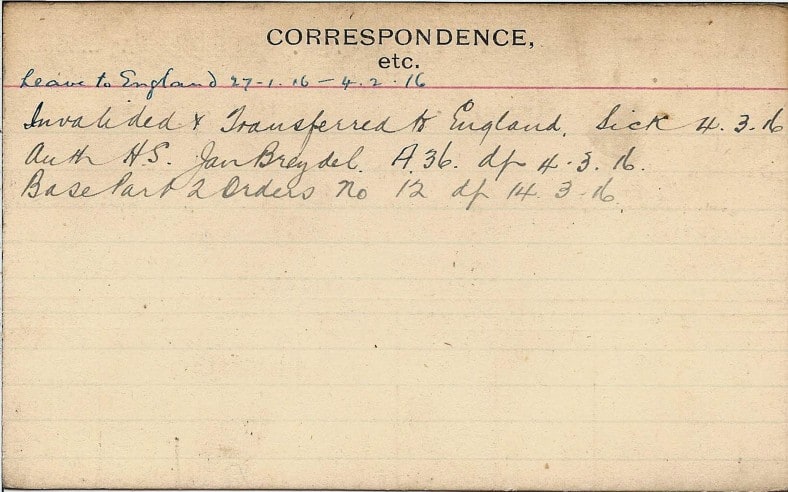 CORRESPONDENCE,
etc.
Leave to England 27-1-16 - 4.2.16
Invalided & Transferred to England. Sick 4.3.16
Auth H.S. Jan Breydel. A.36. df 4.3.16.
Base Part 2 Orders No 12 df 14.3.16.